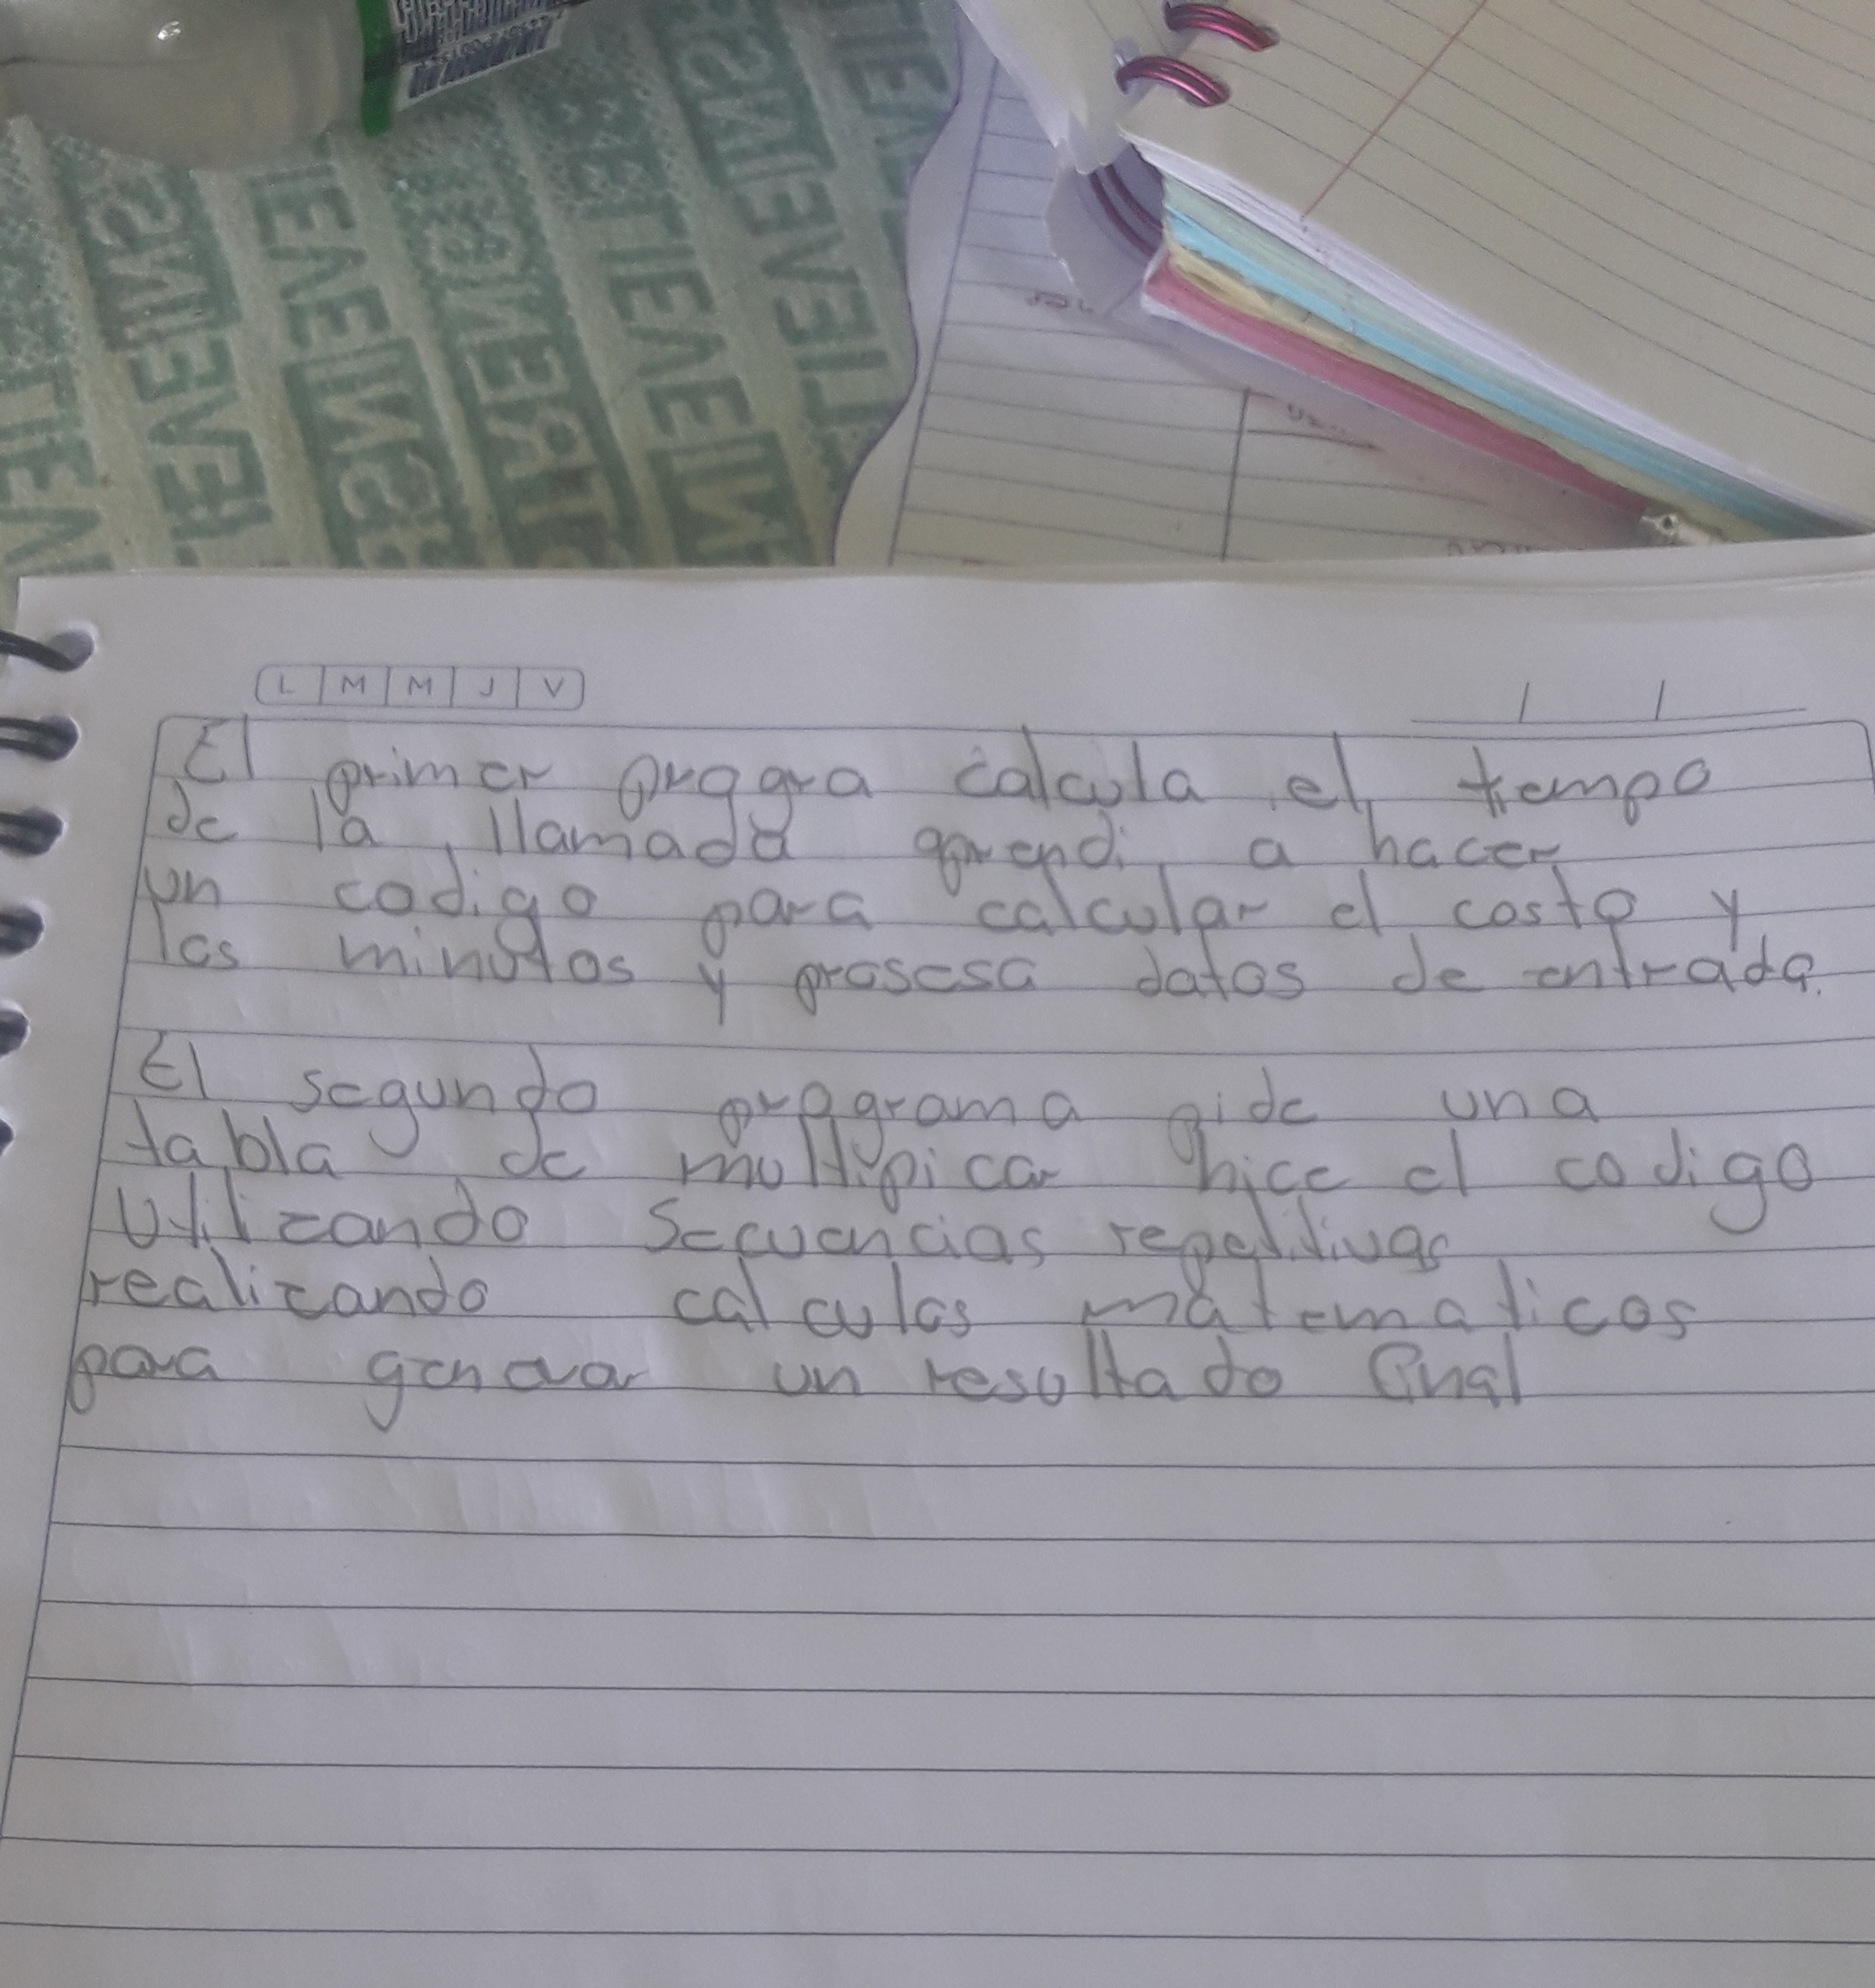 L M M J V
El primer progra calcula el tiempo
de la llamada aprendi a hacer
un codigo para calcular el costo y
los minutos y prosesa datos de entrada.
El segundo programa pide una
tabla de multipicar hice el codigo
Utilizando Secuencias repetitivas
realizando calculos matematicos
para generar un resultado final